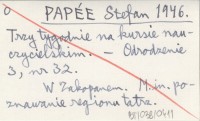 o PAPÉE Stefan 1946.
Trzy tygodnie na kursie nau-
czycielskim. — Odrodzenie
3, nr 32.
W Zakopanem. M.in. po-
znawanie regionu tatrz.